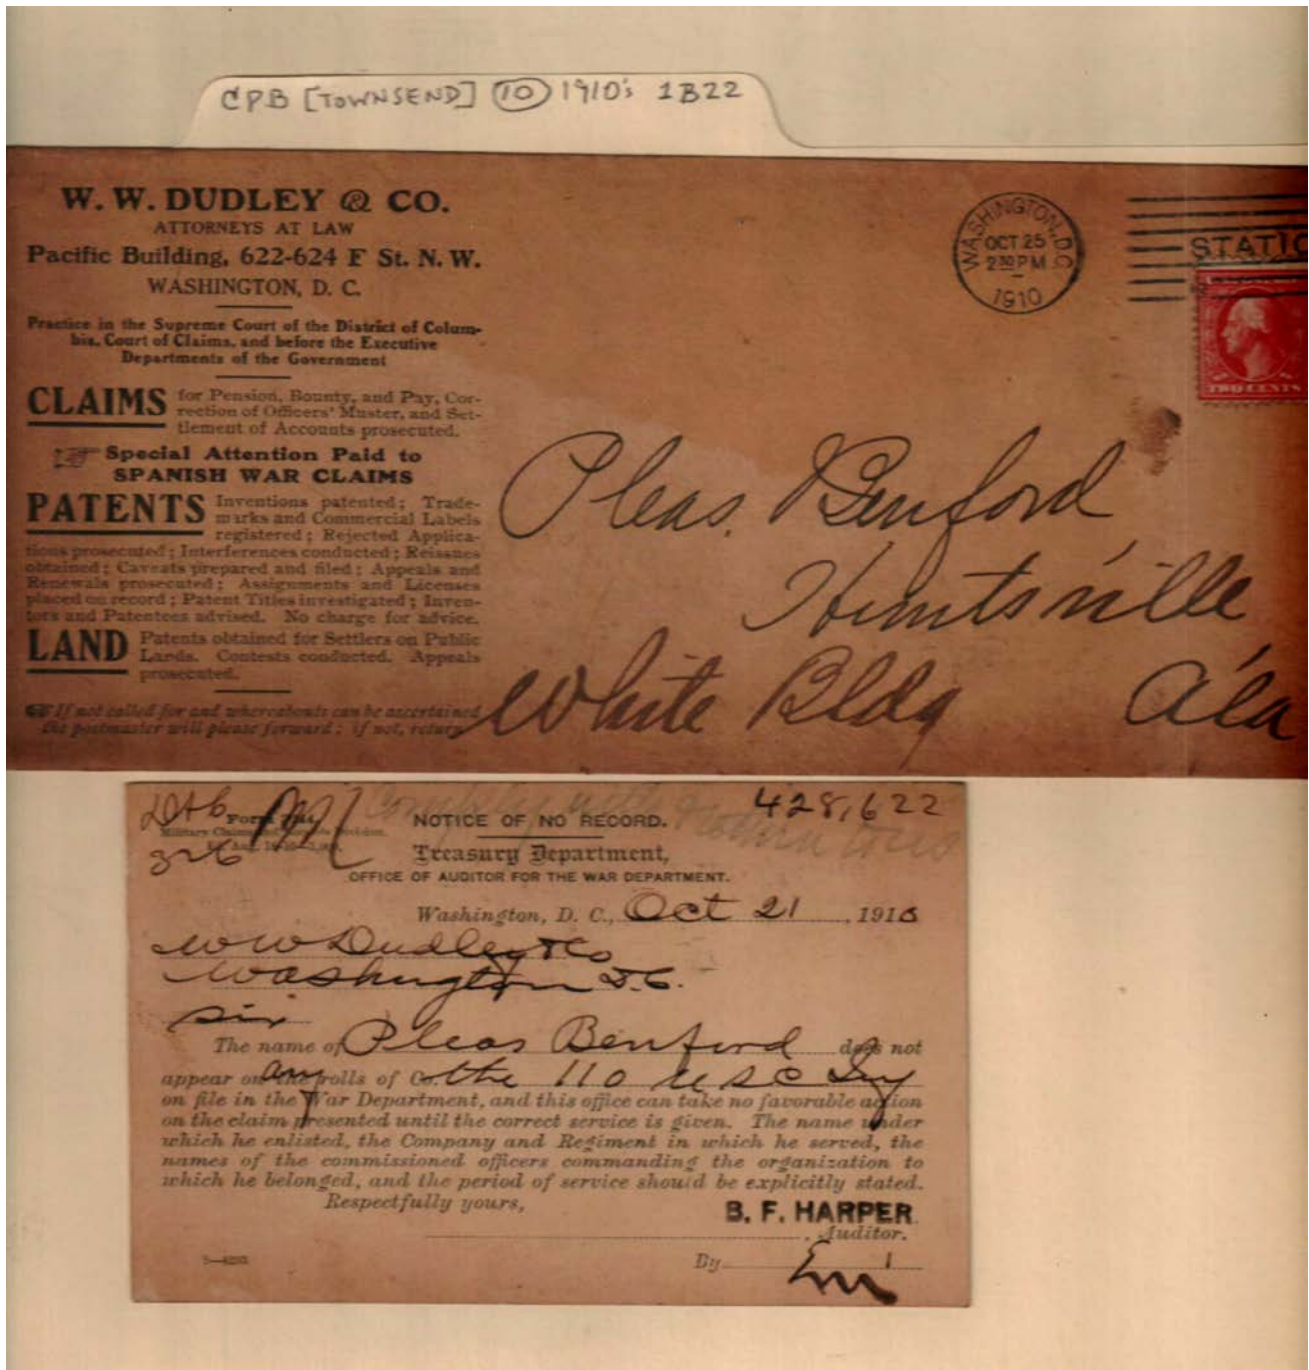 CPB [TOWNSEND] 10 1910's 1B22
W. W. DUDLEY & CO.
ATTORNEYS AT LAW
Pacific Building, 622-624 F St. N. W.
WASHINGTON, D. C.
Practice in the Supreme Court of the District of Colum-
bia, Court of Claims, and before the Executive
Departments of the Government
CLAIMS for Pension, Bounty, and Pay, Cor-
rection of Officers' Muster, and Set-
tlement of Accounts prosecuted.
Special Attention Paid to
SPANISH WAR CLAIMS
PATENTS Inventions patented; Trade-
marks and Commercial Labels
registered; Rejected Applica-
tions prosecuted; Interferences conducted; Reissues
obtained; Caveats prepared and filed; Appeals and
Renewals prosecuted; Assignments and Licenses
placed on record; Patent Titles investigated; Inven-
tors and Patentees advised. No charge for advice.
LAND Patents obtained for Settlers on Public
Lands. Contests conducted. Appeals
prosecuted.
If not called for and whereabouts can be ascertained
the postmaster will please forward; if not, return
WASHINGTON, D.C.
OCT 25
2 30 PM
1910
STATIO
TWO CENTS
Pleas. Benford
Huntsville
White Bldg Ala
428,622
NOTICE OF NO RECORD.
Treasury Department,
OFFICE OF AUDITOR FOR THE WAR DEPARTMENT.
Washington, D. C., Oct 21, 1910
W W Dudley & Co
Washington D.C.
Sir
The name of Pleas Benford does not
appear on the any rolls of Co. the 110 U S C Inf
on file in the War Department, and this office can take no favorable action
on the claim presented until the correct service is given. The name under
which he enlisted, the Company and Regiment in which he served, the
names of the commissioned officers commanding the organization to
which he belonged, and the period of service should be explicitly stated.
Respectfully yours,
B. F. HARPER
Auditor.
By